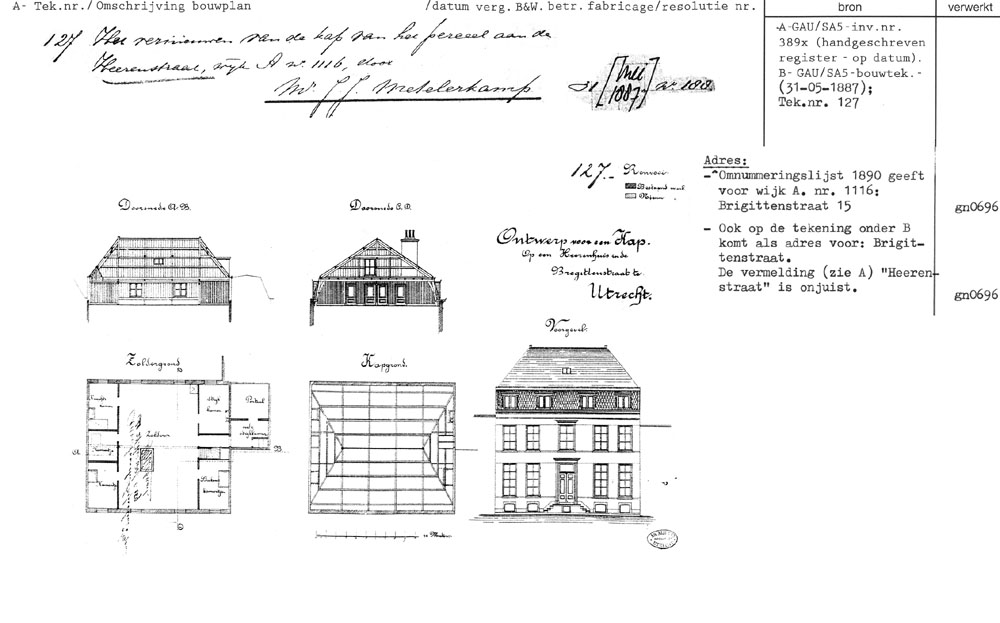 A- Tek.nr./ Omschrijving bouwplan /datum verg. B&W. betr. fabricage/resolutie nr. bron verwerkt
127 Het vernieuwen van de kap van het perceel aan de
Heerenstraat, wijk A no. 1116, door
Mr. J.J. Metelerkamp 31 [Mei 1887] No. 188.
A-GAU/SA5-inv.nr.
389x (handgeschreven
register - op datum).
B- GAU/SA5-bouwtek.-
(31-05-1887);
Tek.nr. 127
127.- Renvooi
Bestaand werk
Nieuw
Adres:
-^Omnummeringslijst 1890 geeft
voor wijk A. nr. 1116:
Brigittenstraat 15 gn0696
- Ook op de tekening onder B
komt als adres voor: Brigit-
tenstraat.
De vermelding (zie A) "Heeren-
straat" is onjuist. gn0696
Doorsnede A.B.
Doorsnede C.D.
Ontwerp voor een Kap.
Op een Heerenhuis in de
Bregittenstraat te
Utrecht.
Voorgevel.
Zoldergrond
Kapgrond.
Zolder
A
B
10 Meter